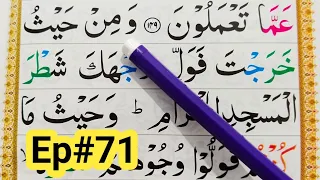 عَمَّا تَعْمَلُوْنَ ﴿۱۴۹﴾ وَمِنْ حَيْثُ
خَرَجْتَ فَوَلِّ وَجْهَكَ شَطْرَ
الْمَسْجِدِ الْحَرَامِ ؕ وَحَيْثُ مَا
فَوَلُّوْا
Ep#71